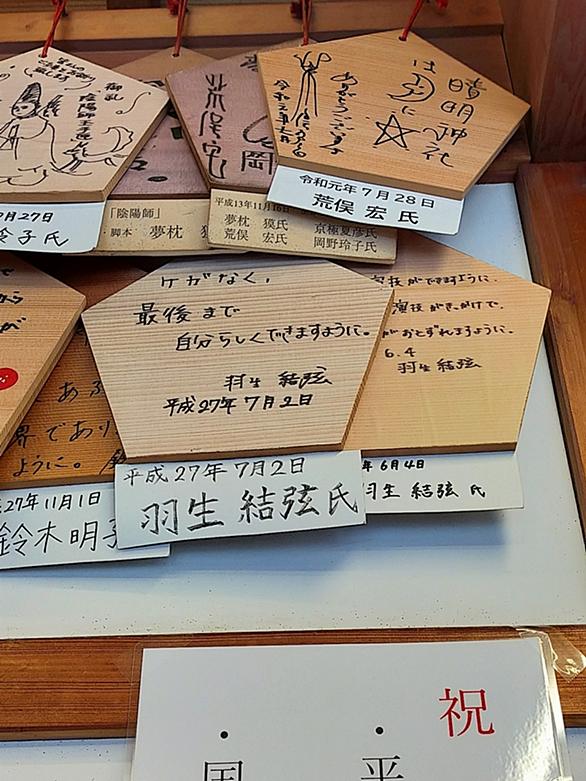 晴明神社
には
ありがとうございます
令和元年七月
令和元年7月28日
荒俣 宏 氏
荒俣宏
岡
御礼
陰陽師
月27日
玲子氏
「陰陽師」
脚本 夢枕
平成13年11月16日
夢枕 獏氏 京極夏彦氏
荒俣 宏氏 岡野玲子氏
ケガなく、
最後まで
自分らしくできますように。
羽生 結弦
平成27年7月2日
平成27年7月2日
羽生 結弦氏
演技ができますように。
演技がきっかけで、
がおとずれますように。
6.4
羽生 結弦
年6月4日
羽生 結弦 氏
から
が
あ
界であり
ように。
27年11月1日
鈴木明子
祝
・ ・
国 平